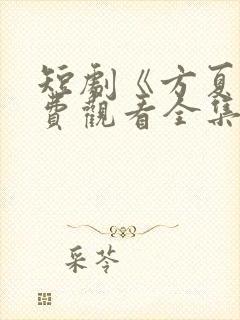 短劇《方夏
費觀看全集
采苓